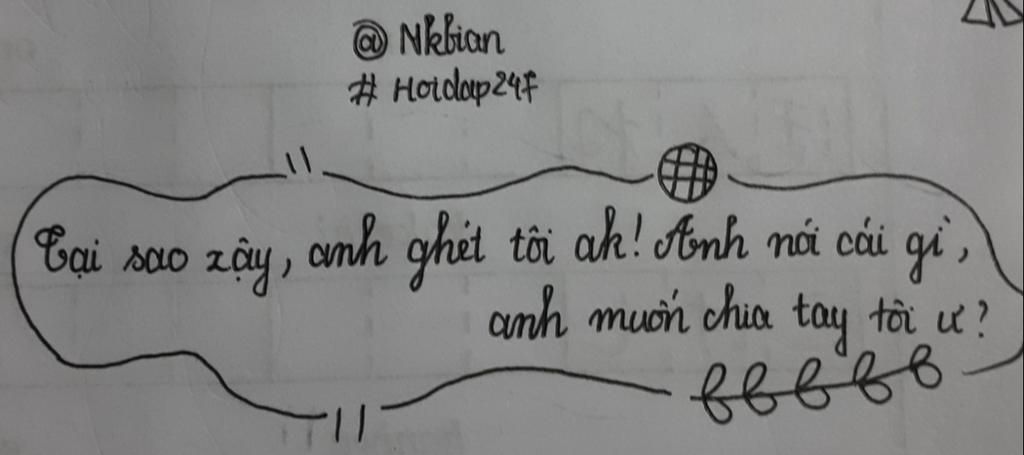 @ Nkbian
# Hoidap247
Tại sao xậy, anh ghét tôi ak! Anh nói cái gì,
anh muốn chia tay tôi ư?